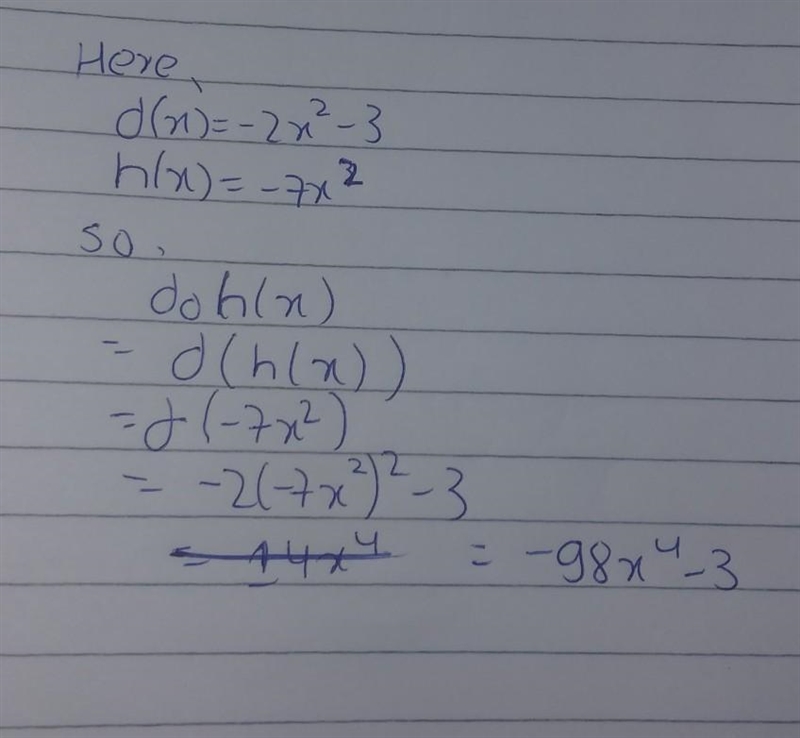 Here,
d(x) = -2x² - 3
h(x) = -7x²
So,
doh(x)
= d(h(x))
= d(-7x²)
= -2(-7x²)² - 3
= -98x⁴ - 3